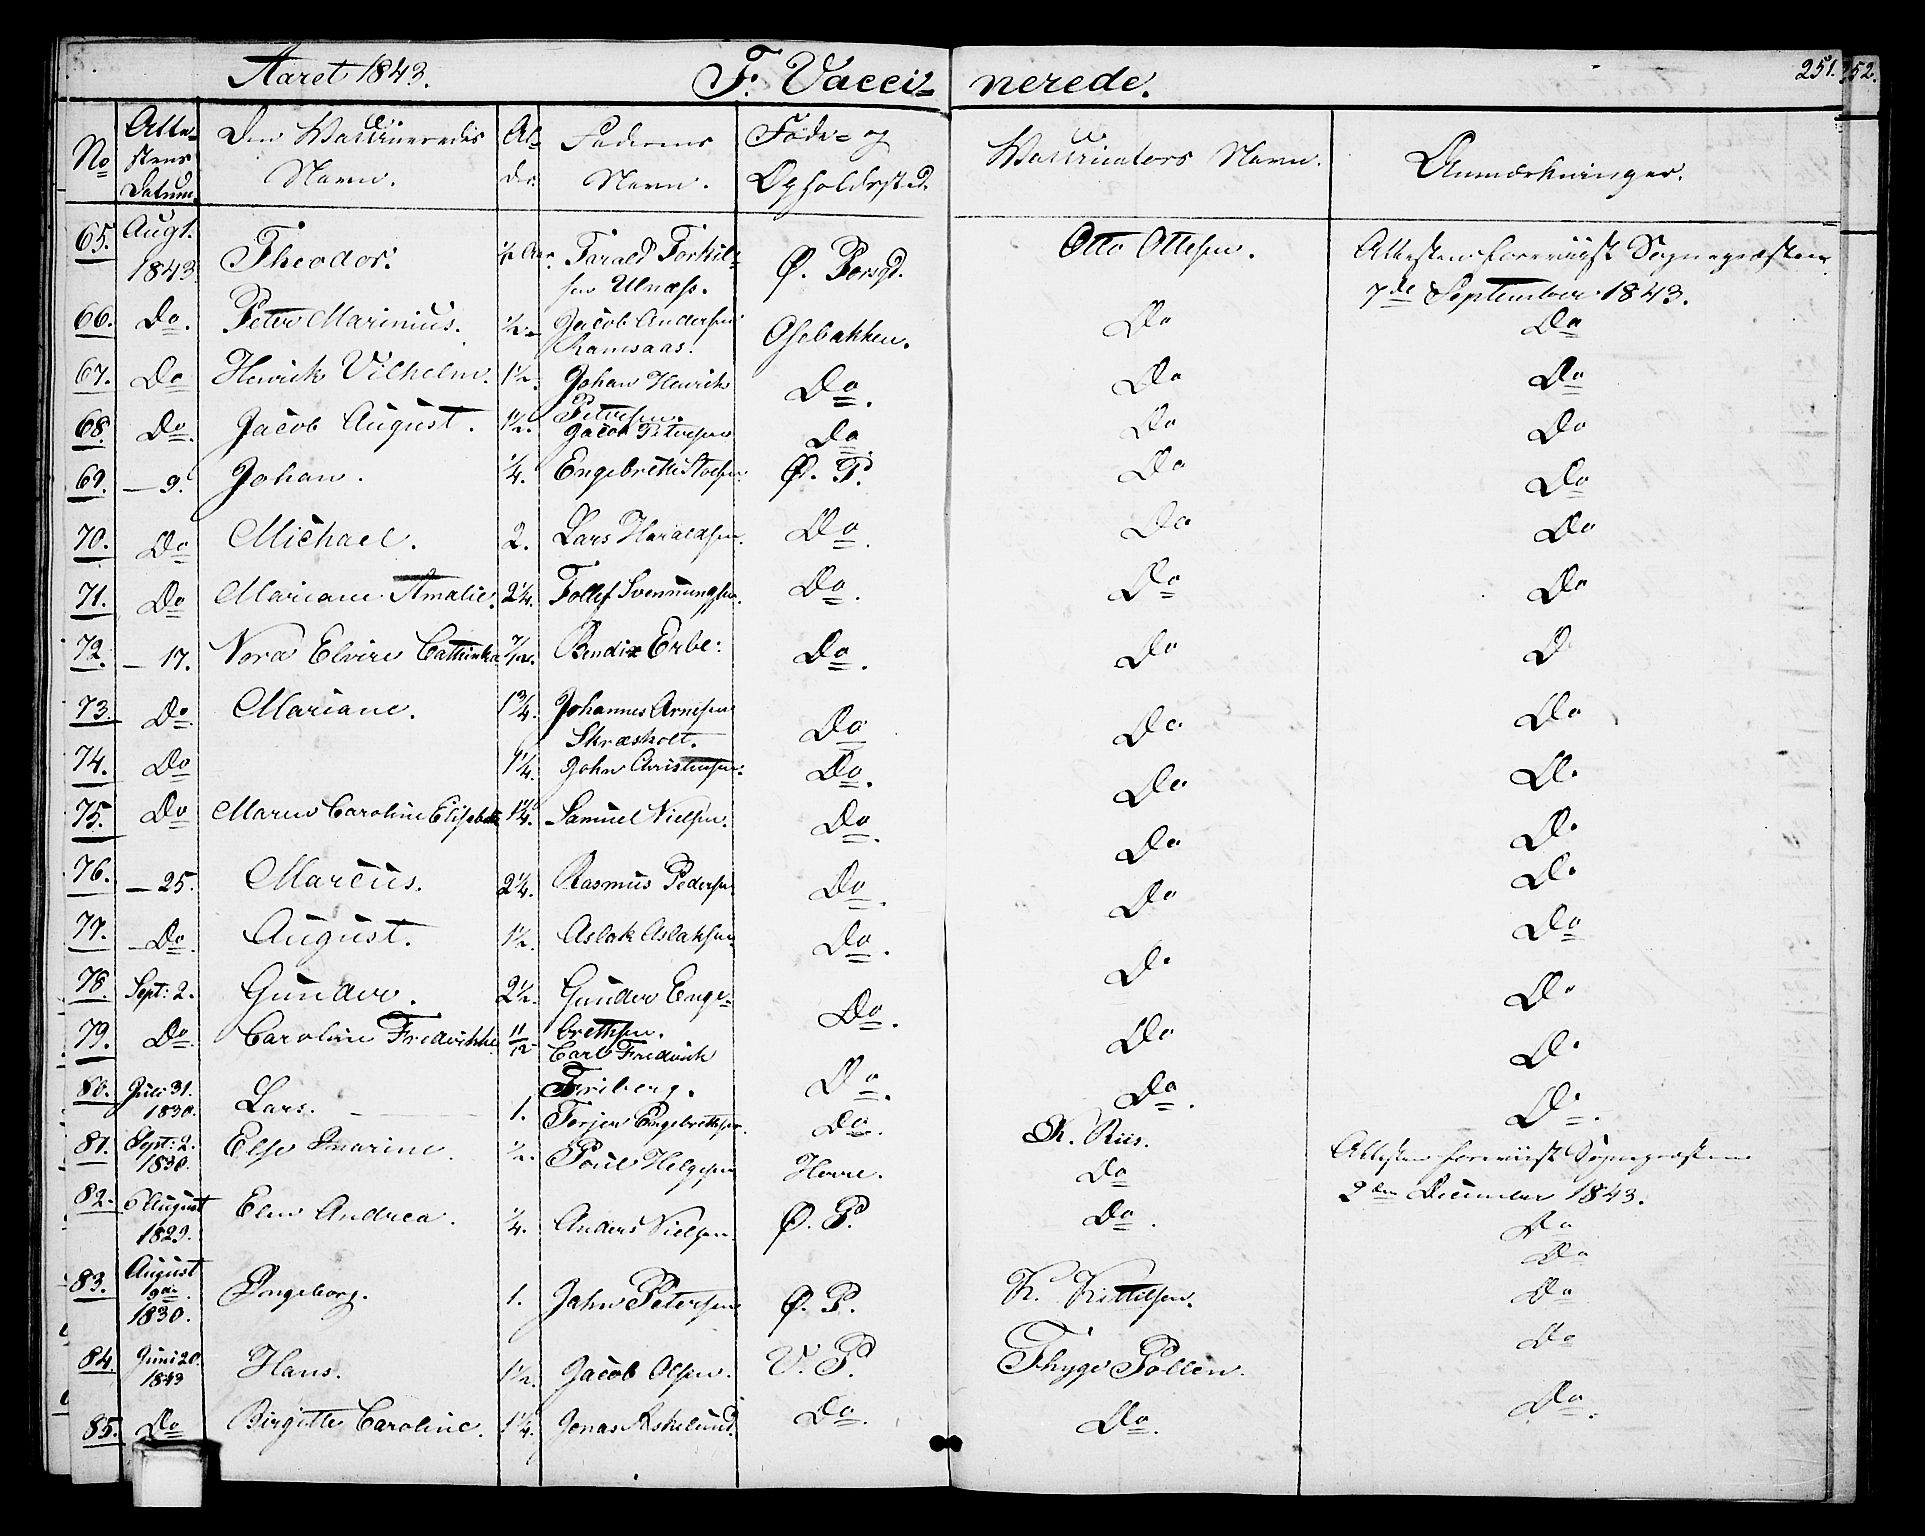 Aaret 1843. F. Vacci- nerede. 251. 252.
No Attestens Datum. Den Vaccineredes Navn. Alder. Faderens Navn. Føde- og Opholdssted. Vaccinators Navn. Anmærkninger.
65. Augt. 1843 Theodor. Tarald Torkilsen Ulnæss. Ø. Porsgd. Otto Ottesen. Attesten foreviist Sognepræsten 7de September 1843.
66. Do. Peter Marinius. 1/2 Jacob Andersen Ramsaas. Osebakken. Do Do
67. Do Henrich Vilhelm. 1 1/2. Johan Henrich Petersen. Do. Do Do
68. Do. Jacob August. 1 1/2. Jacob Petersen Do Do Do
69. — 9. Johan. 1/4. Engebreth Ø. P. Do Do
70. Do Michael. 2. Lars Haraldsen. Do. Do Do
71. Do Mariane Amalie. 2 1/4. Tollef Svennungsen. Do. Do Do
72. — 17. Nora Elvire Cathinka 7/12. Bendix Erbe. Do. Do D.
73. Do. Mariane. 1 3/4. Johannes Arnesen Skræsholt. Do Do Do
74. Do 1 1/4. John Christensen. Do. Do D.
75. Do Maren Caroline Elisabeth 1 1/4. Samuel Nielsen. Do. Do D.
76. — 25. Marcus. 2 1/4. Rasmus Pedersen Do. Do D.
77. — Do. August. 1 1/2. Aslak Aslaksen Do. Do Do
78. Sept: 2. Gunder. 2 1/2. Gunder Engebrethsen. Do. D. D.
79. Do. Caroline Fredrikke 11/12 Carl Fredrick Friberg. Do. Do D.
80. Juli 31. 1830. Lars. 1. Torjer Engebrethsen. Do. Do. D.
81. Sept: 2. 1830. Else Marine. 1/2. Poul Helgesen Herre. R. Riis. Do Attesten foreviist Sognepræsten 2den December 1843.
82. 6 August 1829. Elen Andrea. 1/4. Anders Nielsen. Ø. P. Do. Do
83. August 9de 1830. Ingeborg. 1. Jahn Petersen Ø. P. K. Kittelsen. Do Do
84. Juni 20. 1843 Hans. 1 1/2. Jacob Olsen. V. P. Thyge Pollen. Do
85. Do Birgitte Caroline. 1 1/4. Jonas Askelund. Do. Do. Do.